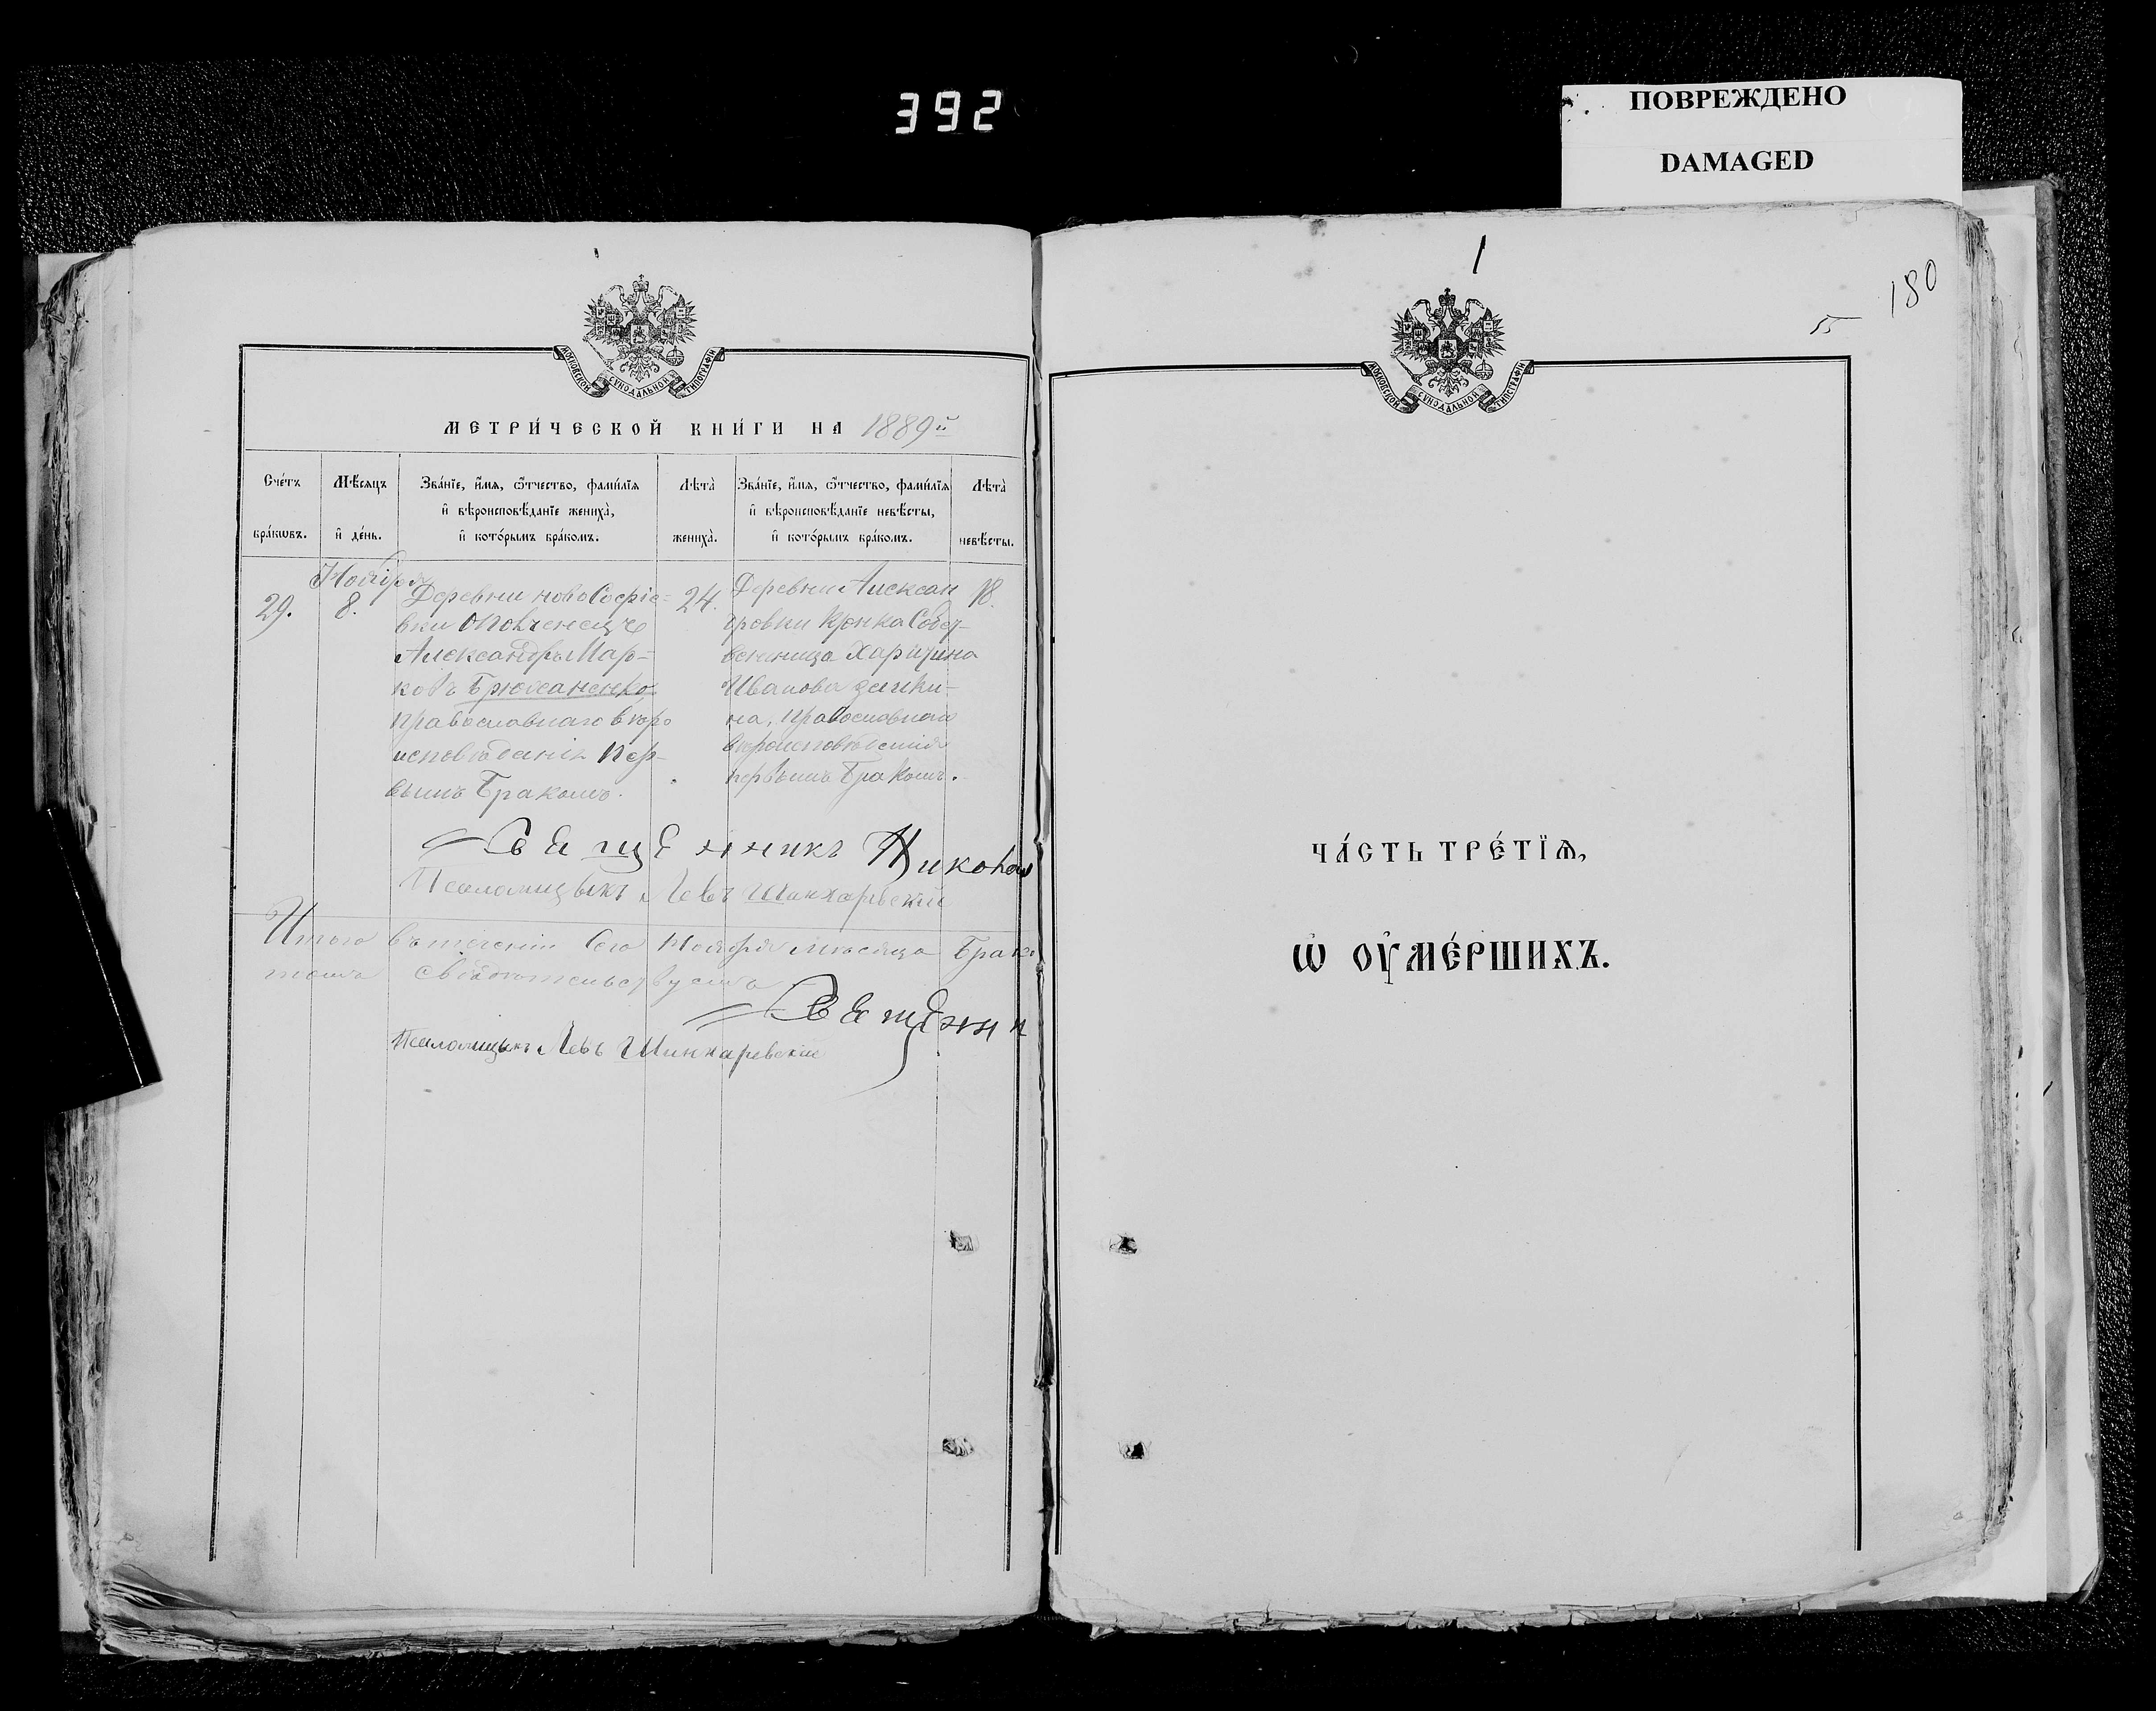 392
ПОВРЕЖДЕНО
DAMAGED
МОСКОВСКОЙ СУНОДАЛЬНОЙ ТИПОГРАФІИ
МЕТРИ́ЧЕСКОЙ КНИ́ГИ НА 1889й
Сче́тъ бра́кѡвъ.
Мѣ́сяцъ и҆ де́нь.
Зва́нїе, и҆́мѧ, ѻ҆́тчество, фами́лїѧ и҆ вѣроисповѣ́данїе жениха̀, и҆ кото́рымъ бра́комъ.
Лѣта̀ жениха̀.
Зва́нїе, и҆́мѧ, ѻ҆́тчество, фами́лїѧ и҆ вѣроисповѣ́данїе невѣ́сты, и҆ кото́рымъ бра́комъ.
Лѣта̀ невѣ́сты.
Ноября
29.
8.
Деревни новоСофіе-
вки
Александръ Мар-
ковъ
православнаго вѣро
исповѣданія пер-
вымъ Бракомъ.
24.
Деревни Алексан
дровки
Иванова
на, православнаго
вѣроисповѣданія
первымъ Бракомъ.
18.
Священникъ Никола
Псаломщикъ Левъ
Итого въ теченіи сего Ноября мѣсяца Брак
свидѣтельствуемъ
Священник
Псаломщикъ Левъ
1
180
55
МОСКОВСКОЙ СУНОДАЛЬНОЙ ТИПОГРАФІИ
ЧА́СТЬ ТРЕ́ТЇѦ,
Ѡ҆ ОУ҆МЕ́РШИХЪ.